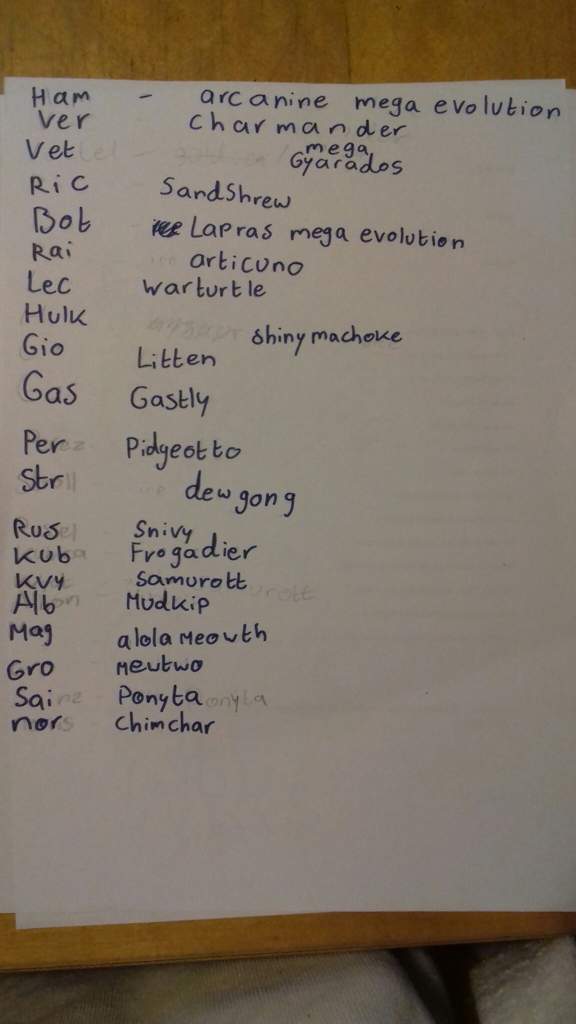 Ham - arcanine mega evolution
ver charmander
Vet mega Gyarados
Ric Sandshrew
Bot Lapras mega evolution
Rai articuno
Lec warturtle
Hulk shiny machoke
Gio Litten
Gas Gastly
Per Pidgeotto
Str dewgong
Rus Snivy
Kub Frogadier
Kvy Samurott
Alb Mudkip
Mag alola Meowth
Gro Mewtwo
Sai Ponyta
nor Chimchar